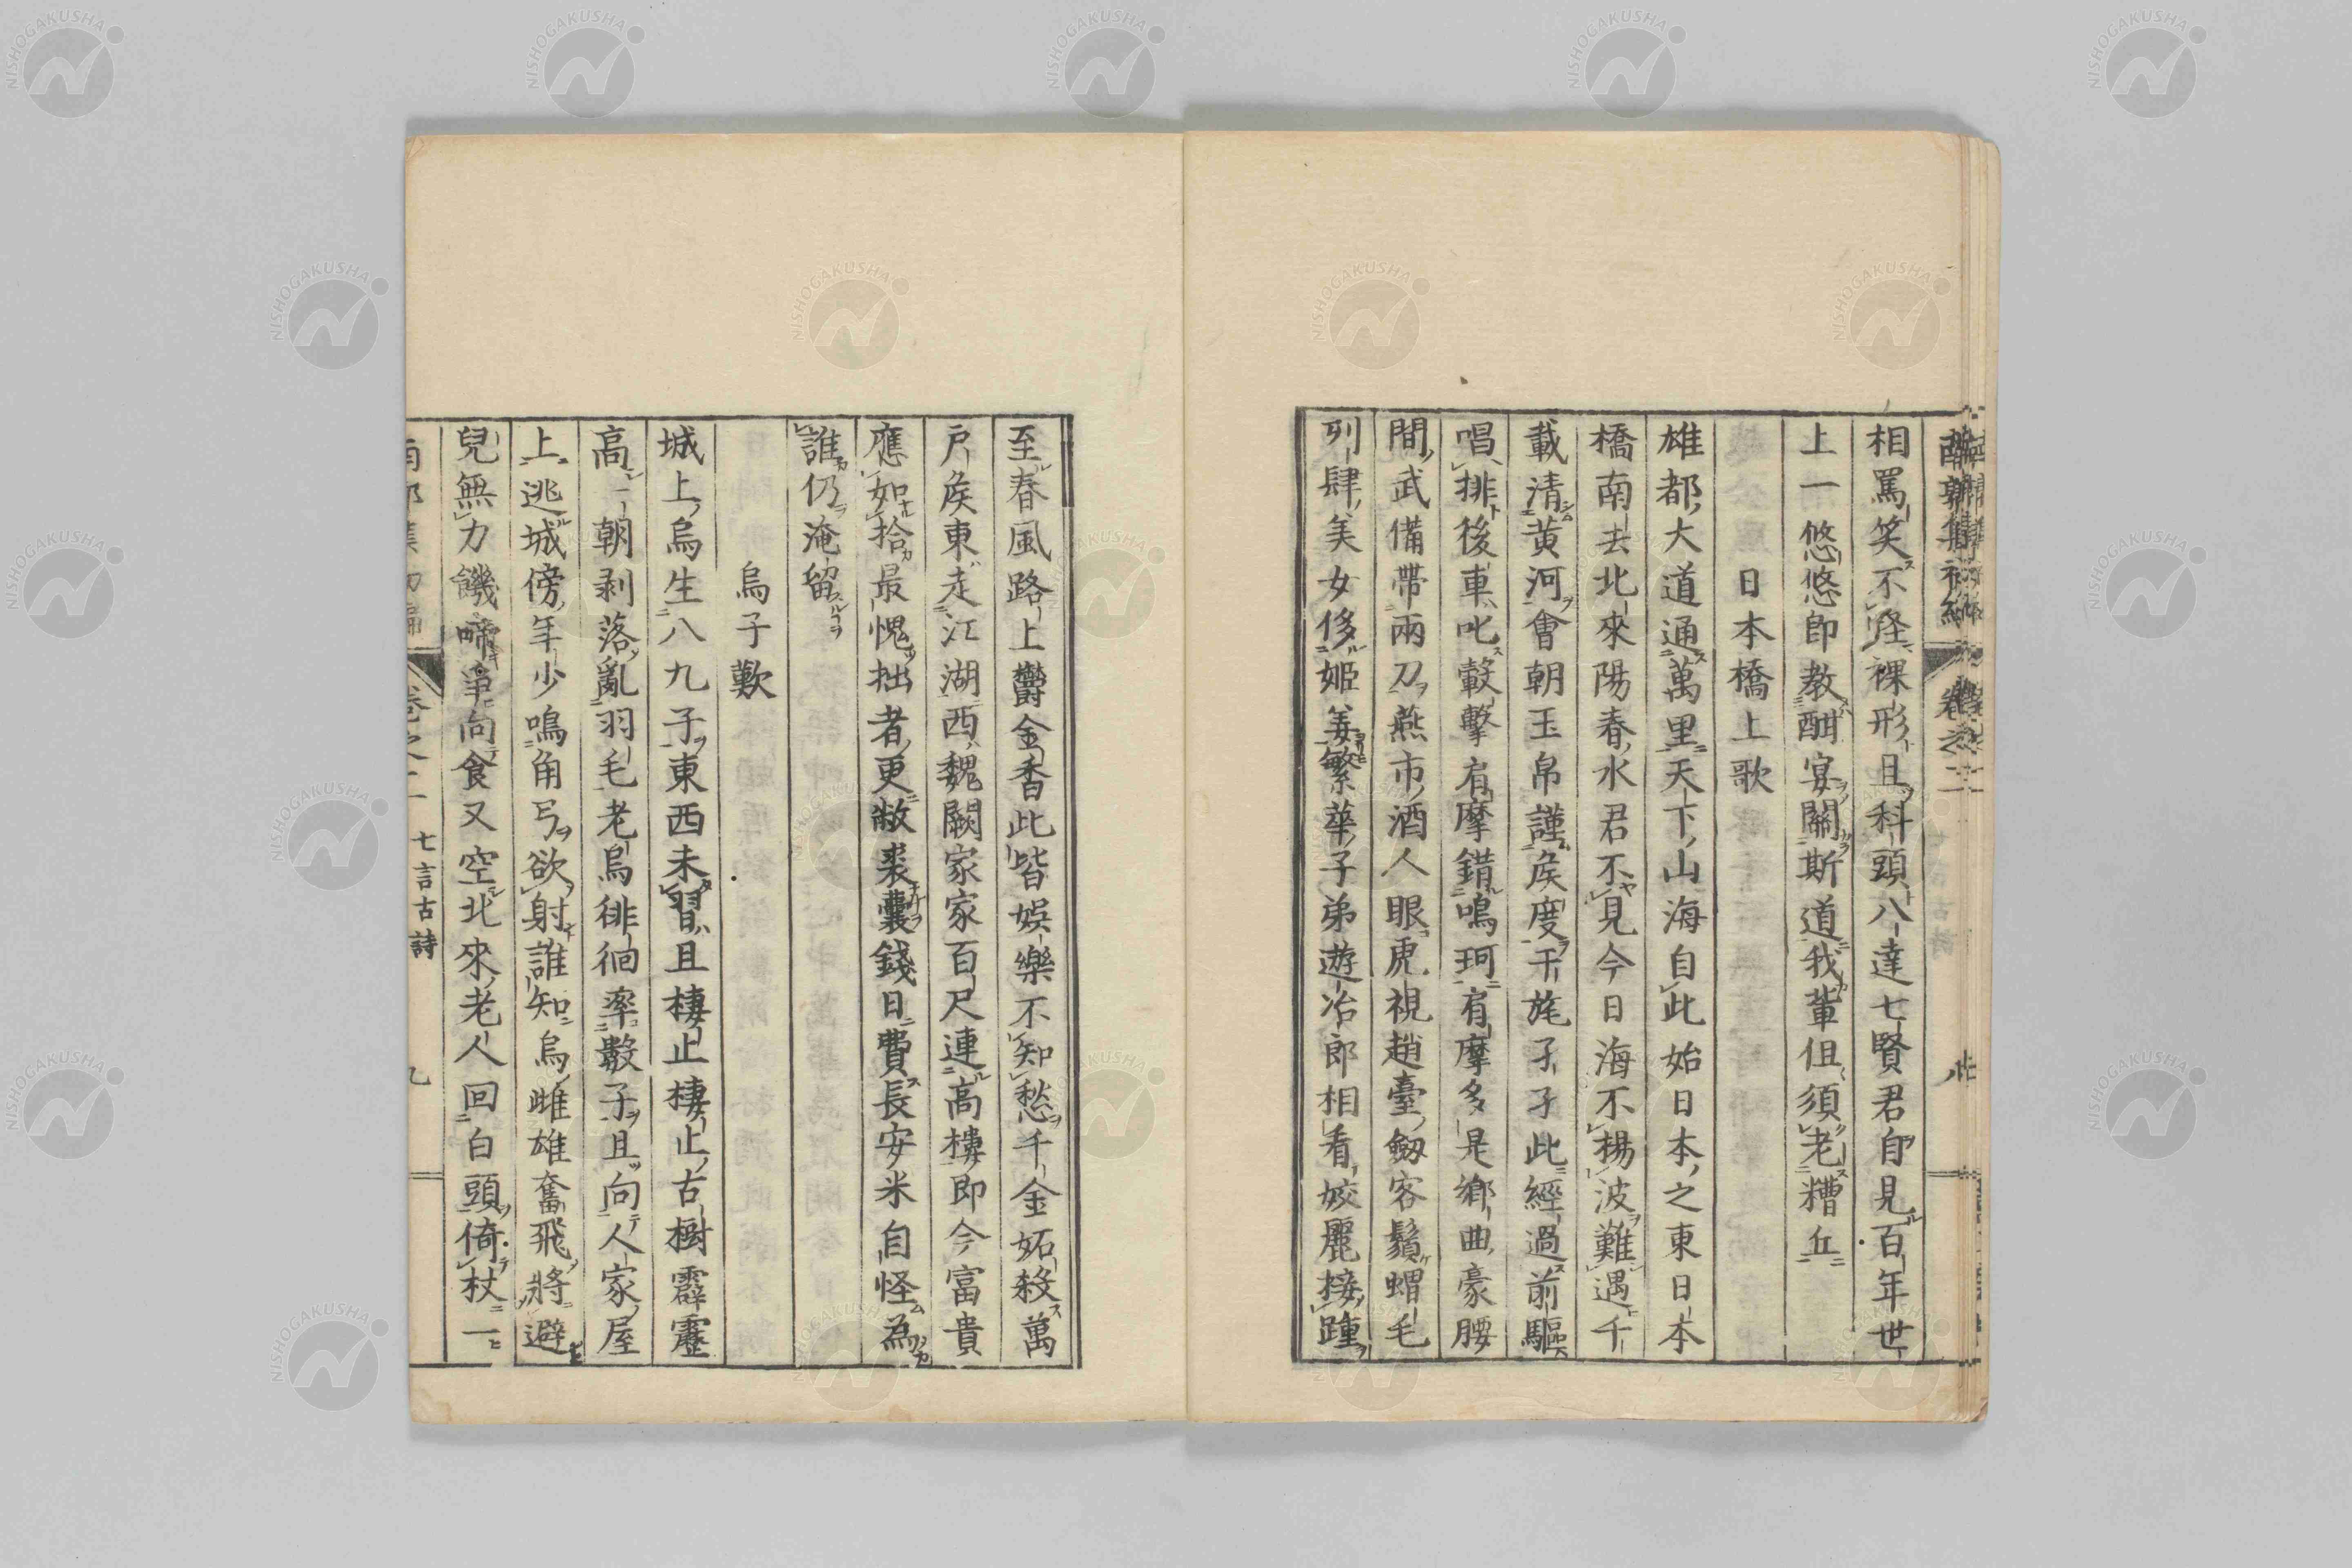 相罵笑不怪裸形且科頭八達七賢君自見百年世
上一悠悠即教酣宴關斯道我輩但須老糟丘
日本橋上歌
雄都大道通萬里天下山海自此始日本之東日本
橋南去北來陽春水君不見今日海不揚波難遇千
載清黃河會朝玉帛謹矦度干旄孑孑此經過前驅
唱排後車叱轂擊肩摩錯鳴珂肩摩多是鄉曲豪腰
間武備帶兩刀燕市酒人眼虎視趙臺劔客鬚蝟毛
列肆美女侈姬姜繁華子弟遊冶郎相看姣麗接踵
至春風路上鬱金香此皆娛樂不知愁千金妬殺萬
戶矦東走江湖西魏闕家家百尺連高樓即今富貴
應如拾最愧拙者更敝裘囊錢日費長安米自怪為
誰仍淹留
烏子歎
城上烏生八九子東西未習且棲止棲止古樹霹靂
高一朝剥落亂羽毛老烏徘徊率數子且向人家屋
上逃城傍年少鳴角弓欲射誰知烏雌雄奮飛將避
兒無力饑啼爭向食又空北來老人回白頭倚杖一
七言古詩
NISHOGAKUSHA